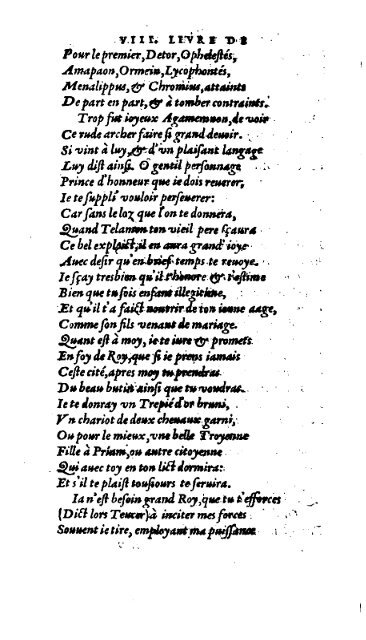 VIII. LIVRE DE
Pour le premier, Detor, Ophelestés,
Amapaon, Ormein, Lycophontés,
Menalippus, & Chromius, attaints
De part en part, & à tomber contraints.
Trop fut ioyeux Agamemnon, de voir
Ce rude archer faire si grand deuoir.
Si vint à luy, & d'vn plaisant langage
Luy dist ainsi. O gentil personnage
Prince d'honneur que ie dois reuerer,
Ie te suppli' vouloir perseuerer:
Car sans le loz que l'on te donnera,
Quand Telamon ton vieil pere sçaura
Ce bel exploict, il en aura grand' ioye
Auec desir qu'en brief temps te reuoye.
Ie sçay tresbien qu'il t'honore & t'estime
Bien que tu sois enfant illegitime,
Et qu'il t'a faict nourrir de ton ieune aage,
Comme son fils venant de mariage.
Quant est à moy, ie te iure & promets
En foy de Roy, que si ie prens iamais
Ceste cité, apres moy tu prendras
Du beau butin ainsi que tu voudras.
Ie te donray vn Trepié d'or bruni,
Vn chariot de deux cheuaux garni,
Ou pour le mieux, vne belle Troyenne
Fille à Priam, ou autre citoyenne
Qui auec toy en ton lict dormira:
Et s'il te plaist tousiours te seruira.
Ia n'est besoin grand Roy, que tu t'efforces
(Dict lors Teucer) à inciter mes forces
Souuent ie tire, employant ma puissance